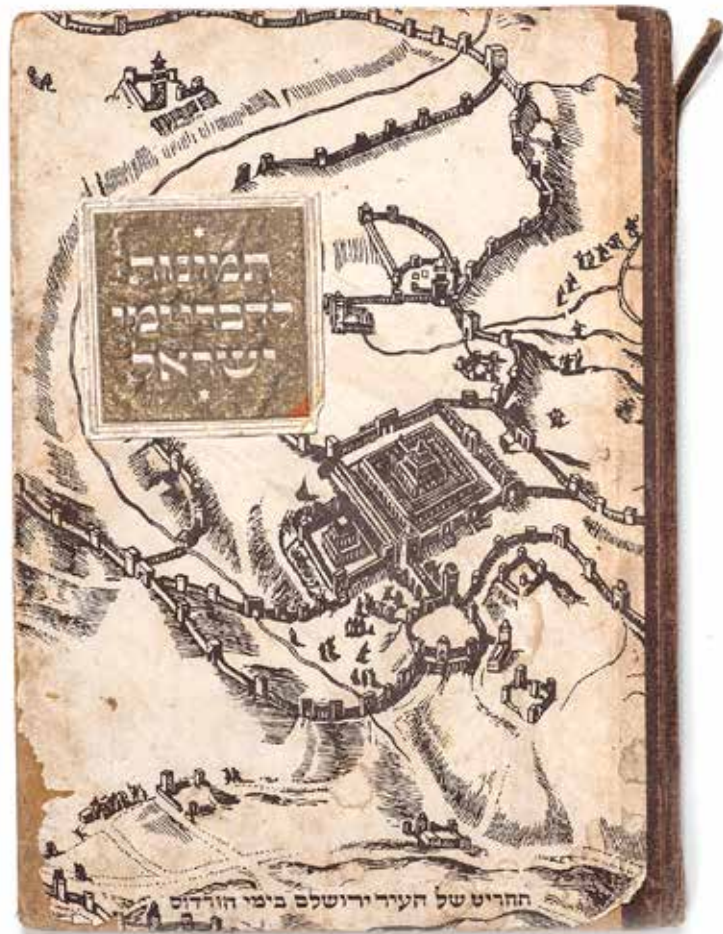 תמונות
לדברי ימי
ישראל
תחריט של העיר ירושלם בימי הורדוס